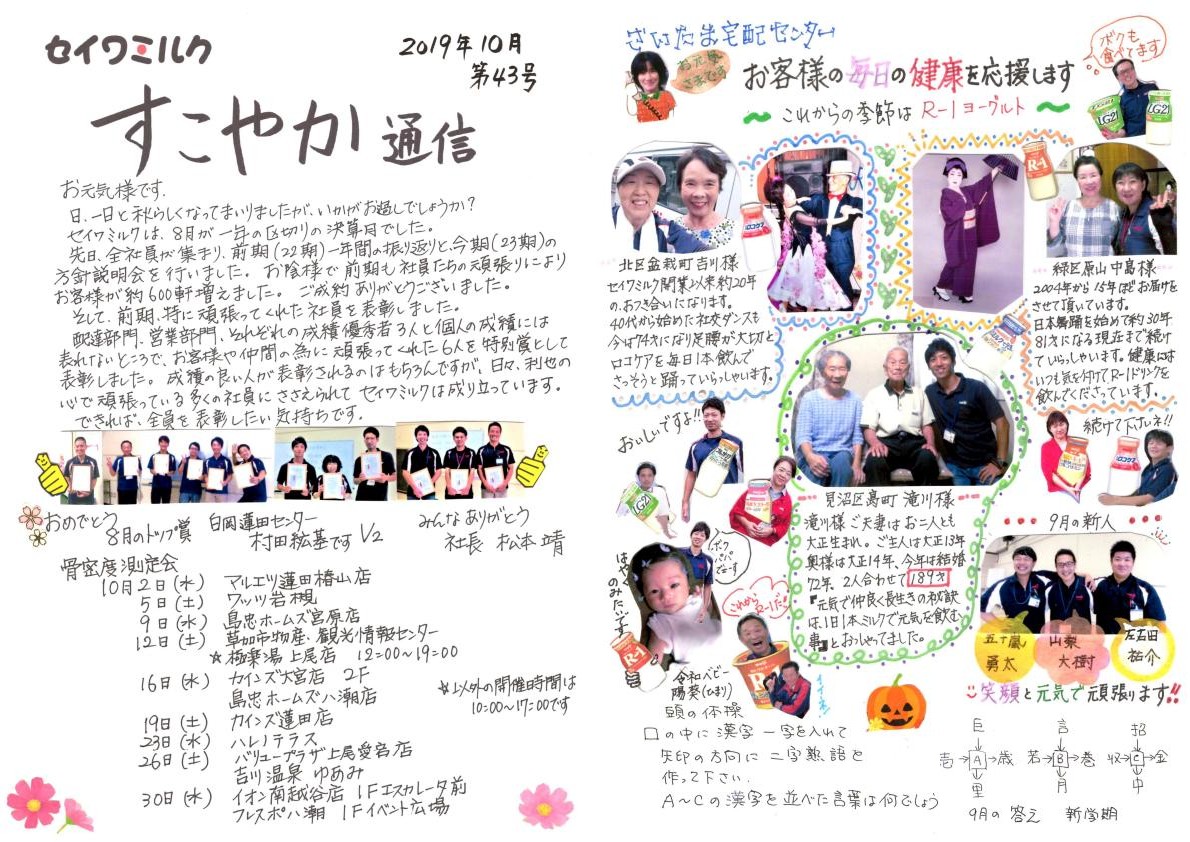 セイワミルク
2019年10月
第43号
すこやか通信
お元気様です.
日、一日と秋らしくなってまいりましたが、いかがお過しでしょうか?
セイワミルクは、8月が一年の区切りの決算月でした。
先日、全社員が集まり、前期(22期)一年間の振り返りと、今期(23期)の
方針説明会を行いました。お陰様で前期も社員たちの頑張りにより
お客様が約600軒増えました。ご成約ありがとうございました。
そして、前期、特に頑張ってくれた社員を表彰しました。
配達部門、営業部門、それぞれの成績優秀者3人と個人の成績には
表れないところで、お客様や仲間の為に頑張ってくれた6人を特別賞として
表彰しました。成績の良い人が表彰されるのはもちろんですが、日々、利他の
心で頑張っている多くの社員にささえられてセイワミルクは成り立っています。
できれば、全員を表彰したい気持ちです。
おめでとう
8月のトップ賞
白岡蓮田センター
村田紘基です 1/2
みんなありがとう
社長 松本靖
骨密度測定会
10月2日(水) マルエツ蓮田椿山店
5日(土) ワッツ岩槻
9日(水) 島忠ホームズ宮原店
12日(土) 草加市物産、観光情報センター
☆極楽湯上尾店 12:00〜19:00
16日(水) カインズ大宮店 2F
島忠ホームズ八潮店
☆以外の開催日時間は
10:00〜17:00です
19日(土) カインズ蓮田店
23日(水) ハレノテラス
26日(土) バリュープラザ上尾愛宕店
吉川温泉 ゆあみ
30日(水) イオン南越谷店 1Fエスカレータ前
フレスポ八潮 1Fイベント広場
さいたま宅配センター
お元気さまです
お客様の毎日の健康を応援します
〜これからの季節はR-1ヨーグルト〜
ボクも
食べてます
LG21
LG21
R-1
北区盆栽町吉川様
セイワミルク開業以来約20年
のおつき合いになります。
40代から始めた社交ダンスも
今は74才になり足腰が大切と
ロコケアを毎日1本飲んで
さっそうと踊っていらっしゃいます。
ロコケア
緑区原山 中島様
2004年から15年ほどお届けを
させて頂いています。
日本舞踊を始めて約30年
81才になる現在まで続け
ていらっしゃいます。健康には
いつも気を付けてR-1ドリンクを
飲んでくださっています。
おいしいですよ!!
続けて下さいネ!!
LG21
ロコケア
見沼区島町 滝川様
滝川様ご夫妻はお二人とも
大正生まれ。ご主人は大正13年
奥様は大正14年、今年は結婚
72年、2人合わせて189才
『元気で仲良く長生きの秘訣
は、1日1本ミルクで元気を飲む
事』とおっしゃてました。
ボク
パパ
でーす
はやくのみたいです
R-1
これからR-1だ!
R-1
イイネ!
令和ベビー
陽葵(ひまり)
9月の新人
五十嵐
勇太
山梨
大樹
左右田
祐介
笑顔と元気で頑張ります!!
頭の体操
口の中に漢字一字を入れて
矢印の方向に二字熟語を
作って下さい.
A〜Cの漢字を並べた言葉は何でしょう
巨
吉→A→歳
里
言
若→B→巻
月
招
収→C→金
中
9月の答え 新学期